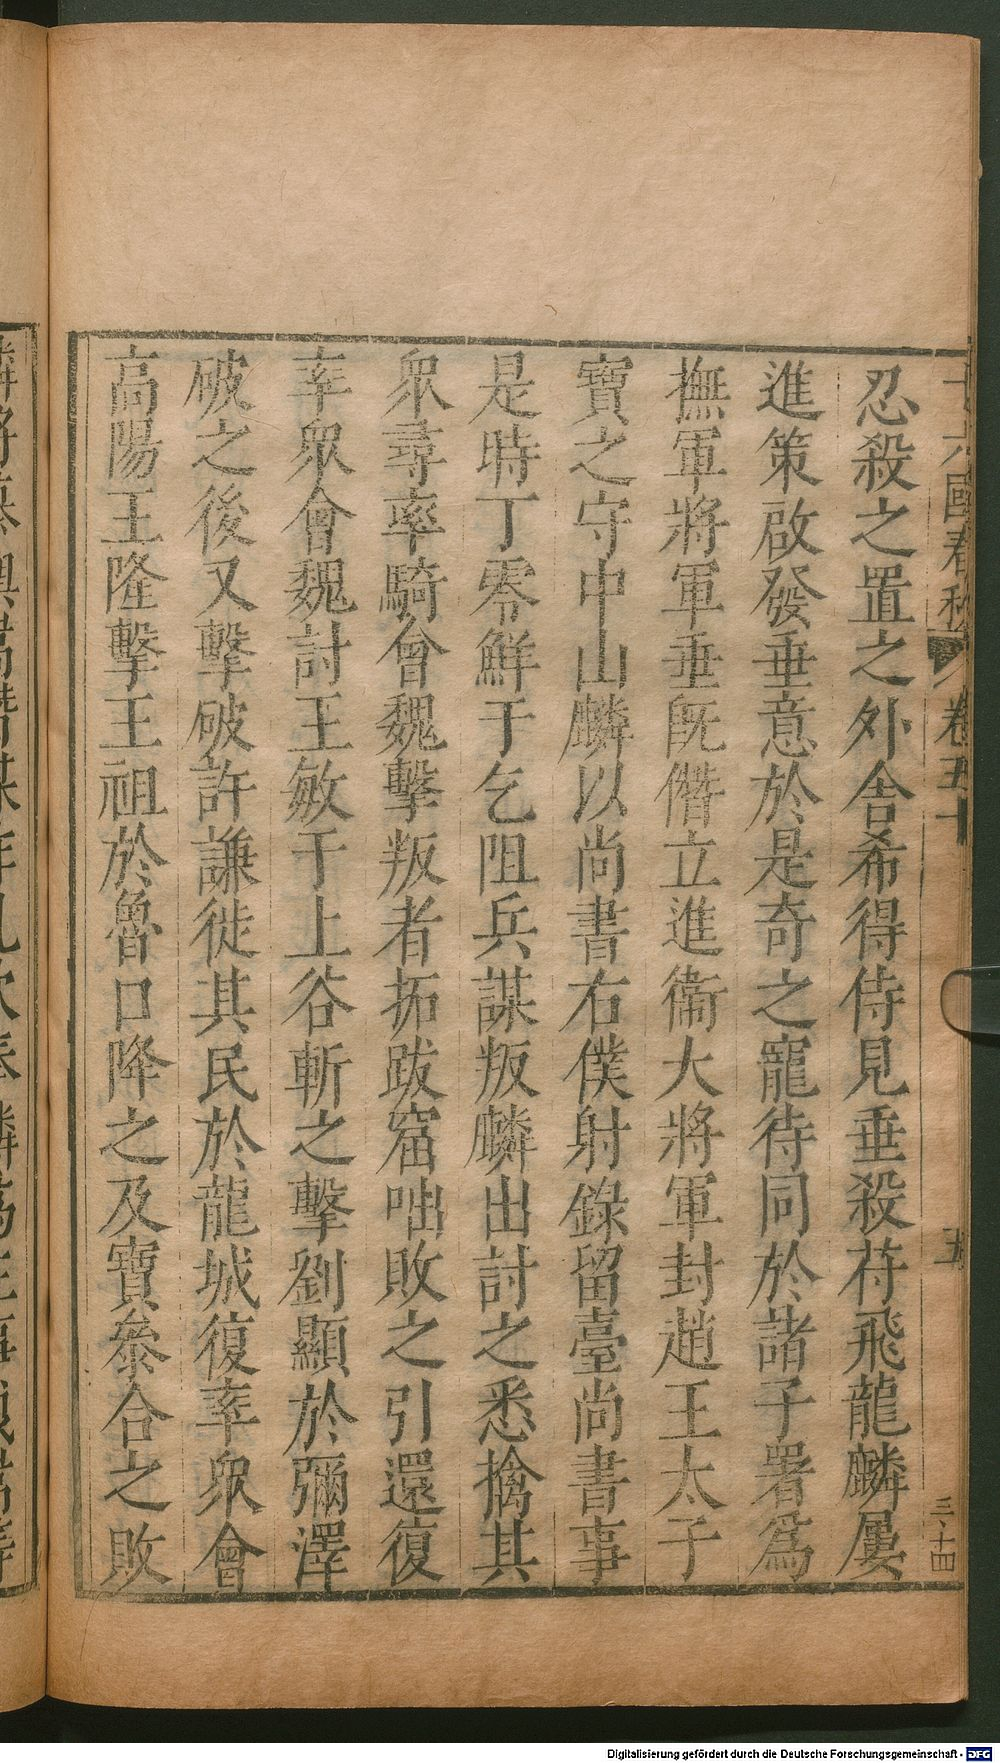 十六國春秋 卷五十 五 三、十四
忍殺之置之外舍希得侍見垂殺苻飛龍麟屢
進策啟發垂意於是奇之寵待同於諸子署為
撫軍將軍垂既僭立進衞大將軍封趙王太子
寶之守中山麟以尚書右僕射錄留臺尚書事
是時丁零鮮于乞阻兵謀叛麟出討之悉擒其
衆尋率騎會魏擊叛者拓跋窟咄敗之引還復
率衆會魏討王敏于上谷斬之擊劉顯於彌澤
破之後又擊破許謙徙其民於龍城復率衆會
高陽王隆擊王祖於魯口降之及寶叅合之敗
Digitalisierung gefördert durch die Deutsche Forschungsgemeinschaft - DFG